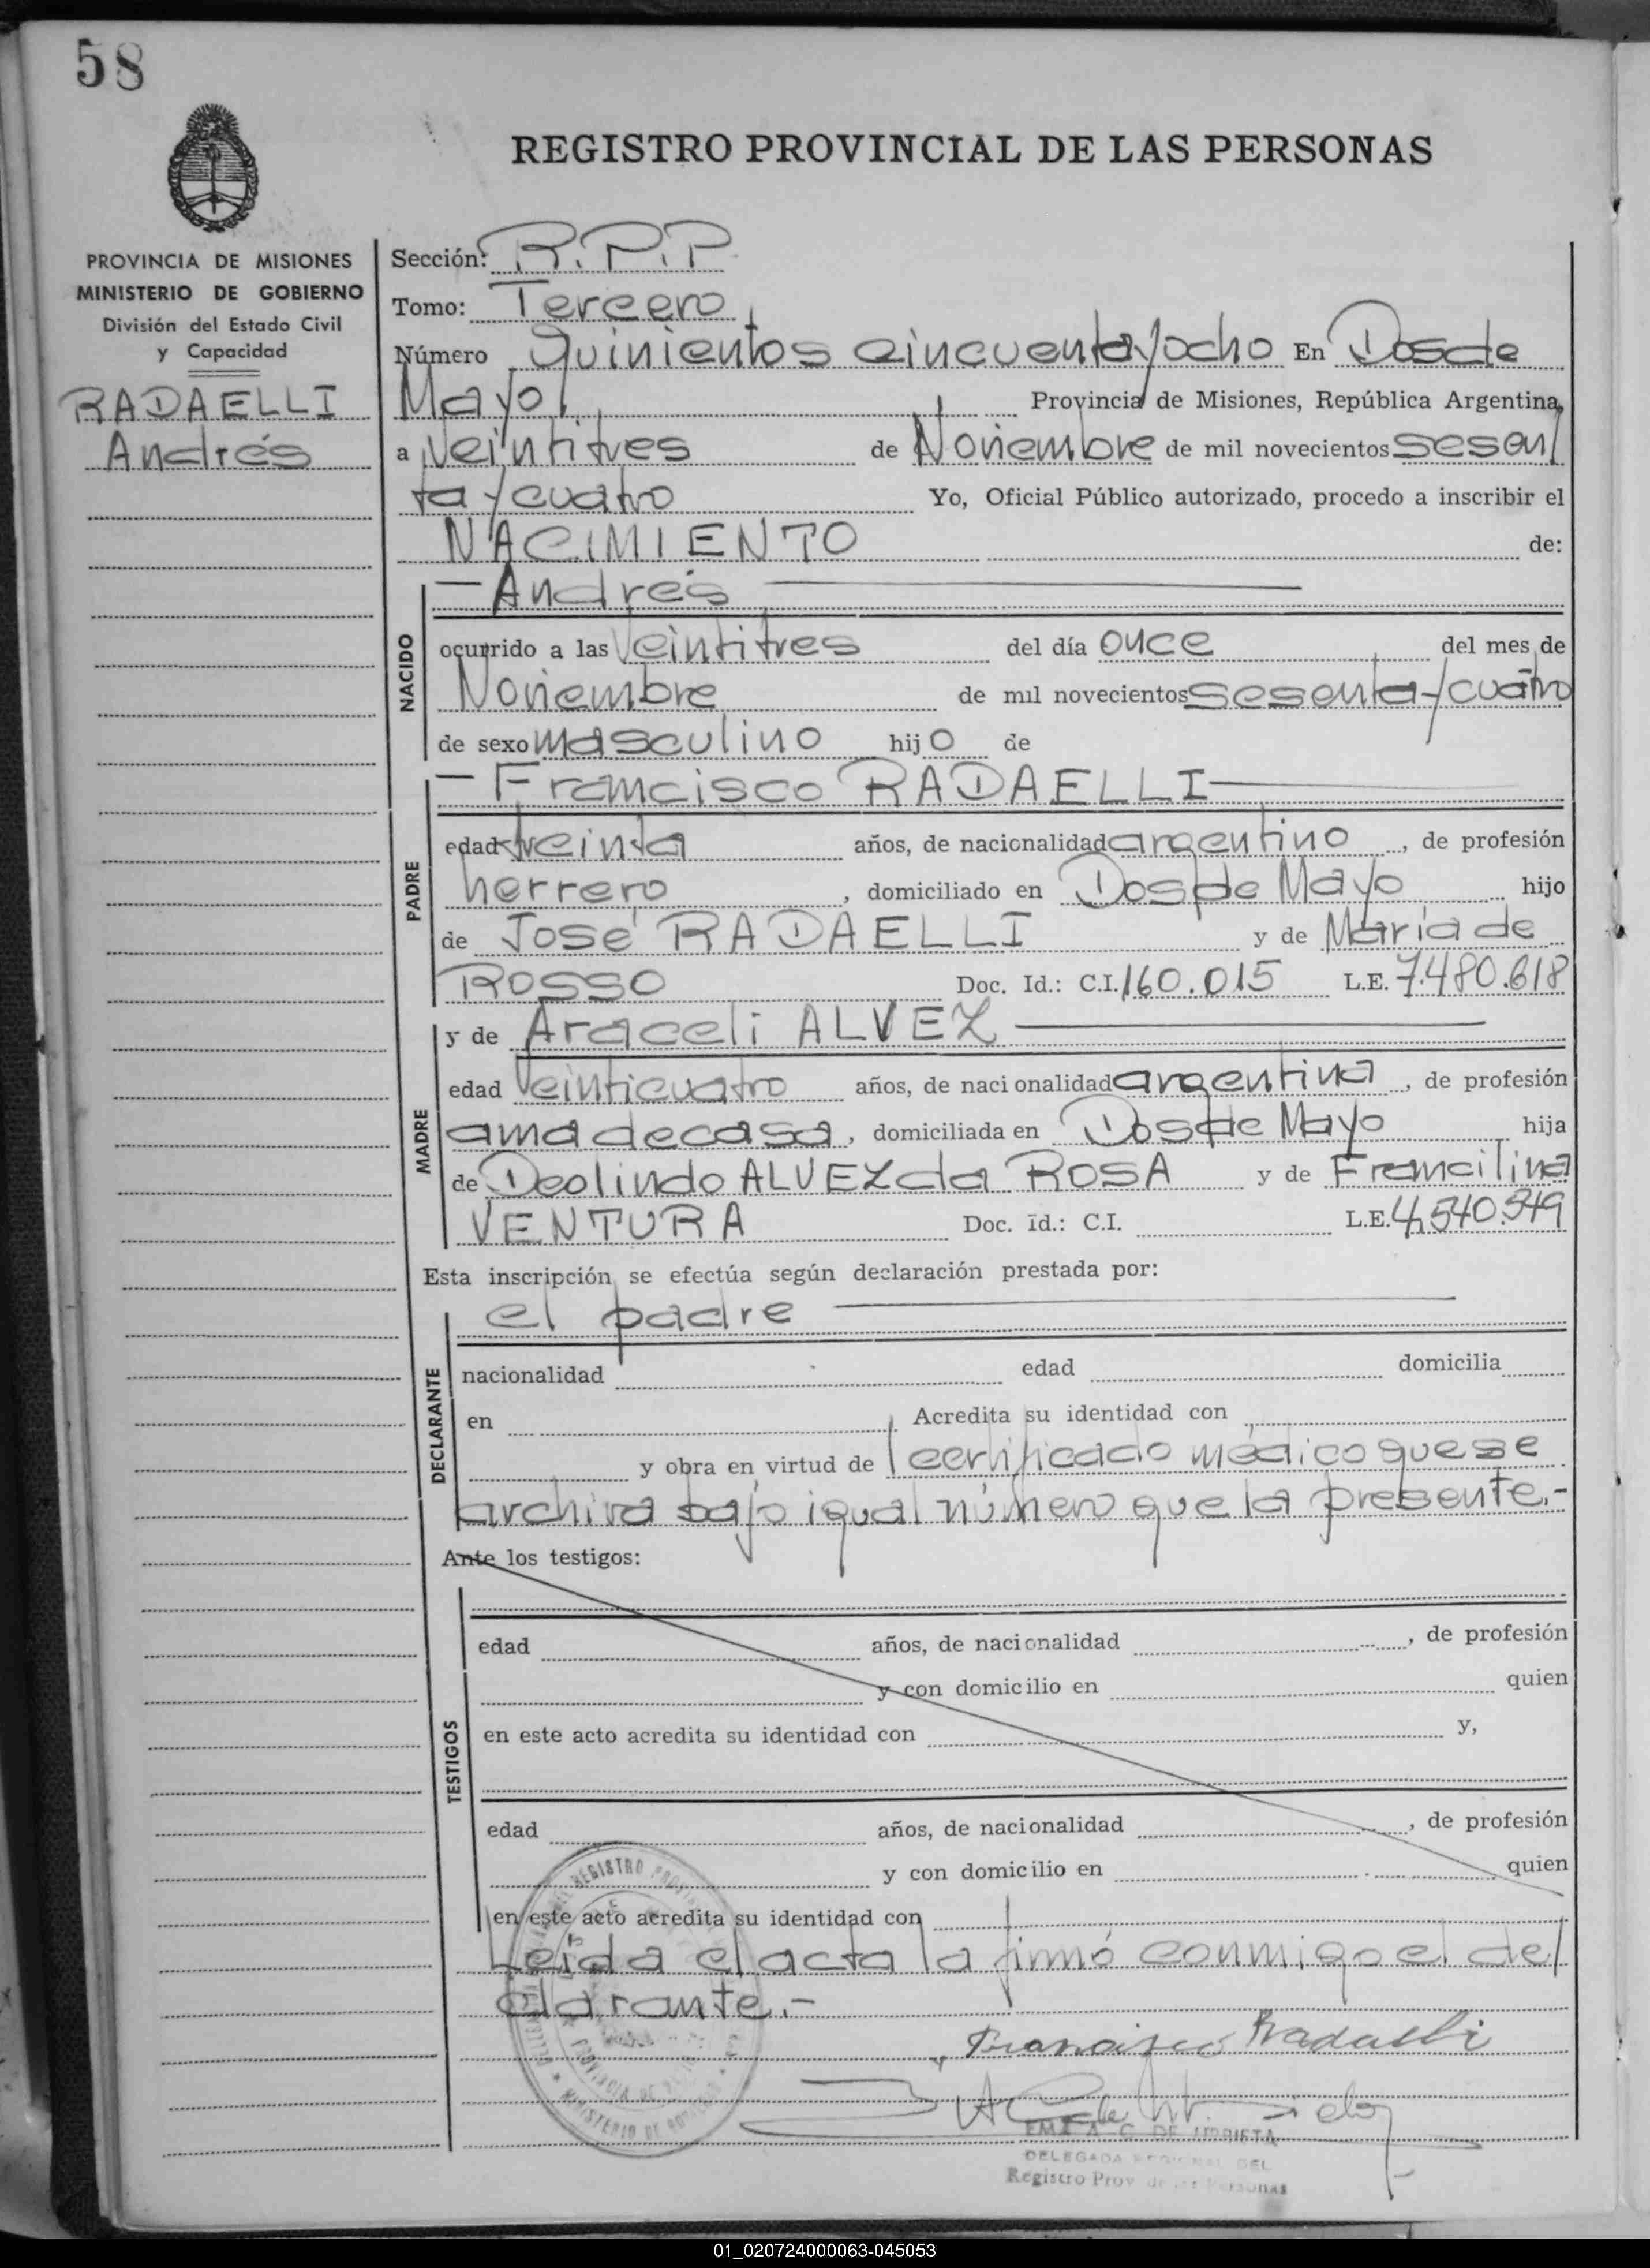 58
REGISTRO PROVINCIAL DE LAS PERSONAS
PROVINCIA DE MISIONES
MINISTERIO DE GOBIERNO
División del Estado Civil
y Capacidad
RADAELLI
Andrés
Sección: R.P.P
Tomo: Tercero
Número Quinientos cincuenta y ocho En Dos de
Mayo Provincia de Misiones, República Argentina,
a Veintitres de Noviembre de mil novecientos sesen
ta y cuatro Yo, Oficial Público autorizado, procedo a inscribir el
NACIMIENTO de:
NACIDO
Andrés
ocurrido a las Veintitres del día once del mes de
Noviembre de mil novecientos sesenta y cuatro
de sexo masculino hijo de
PADRE
Francisco RADAELLI
edad treinta años, de nacionalidad argentino, de profesión
herrero, domiciliado en Dos de Mayo hijo
de José RADAELLI y de María de
ROSSO Doc. Id.: C.I. 160.015 L.E. 7.480.618
MADRE
y de Araceli ALVEZ
edad Veinticuatro años, de nacionalidad argentina, de profesión
ama de casa, domiciliada en Dos de Mayo hija
de Deolindo ALVEZ da ROSA y de Francilina
VENTURA Doc. Id.: C.I. L.E. 4.540.549
Esta inscripción se efectúa según declaración prestada por:
DECLARANTE
el padre
nacionalidad edad domicilia
en Acredita su identidad con
y obra en virtud de certificado médico que se
archiva bajo igual número que la presente.-
Ante los testigos:
TESTIGOS
edad años, de nacionalidad , de profesión
y con domicilio en quien
en este acto acredita su identidad con y,
edad años, de nacionalidad , de profesión
y con domicilio en quien
en este acto acredita su identidad con
Leida el acta la firmó conmigo el de
clarante.-
Francisco Radaelli
EMA A. C. DE URRIETA
DELEGADA REGIONAL DEL
Registro Prov de las Personas
REGISTRO
MINISTERIO DE
PROVINCIA DE
01_020724000063-045053